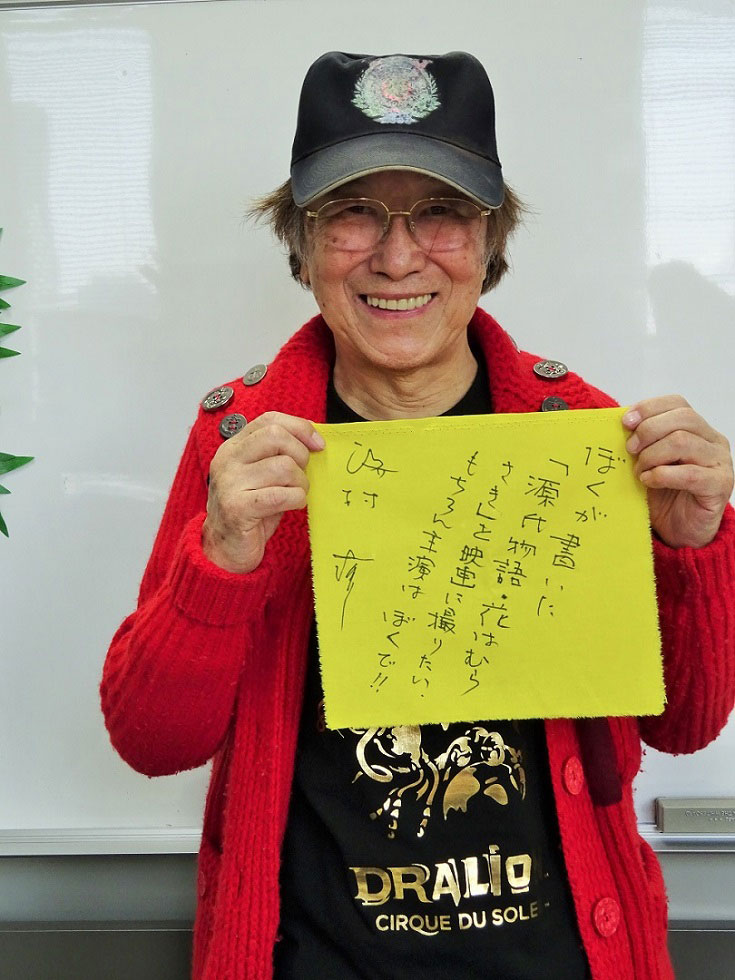 ぼくが書いた
「源氏物語・花はむら
さき」を映画に撮りたい.
もちろん主演はぼくで!!
村
DRALIO
CIRQUE DU SOLE